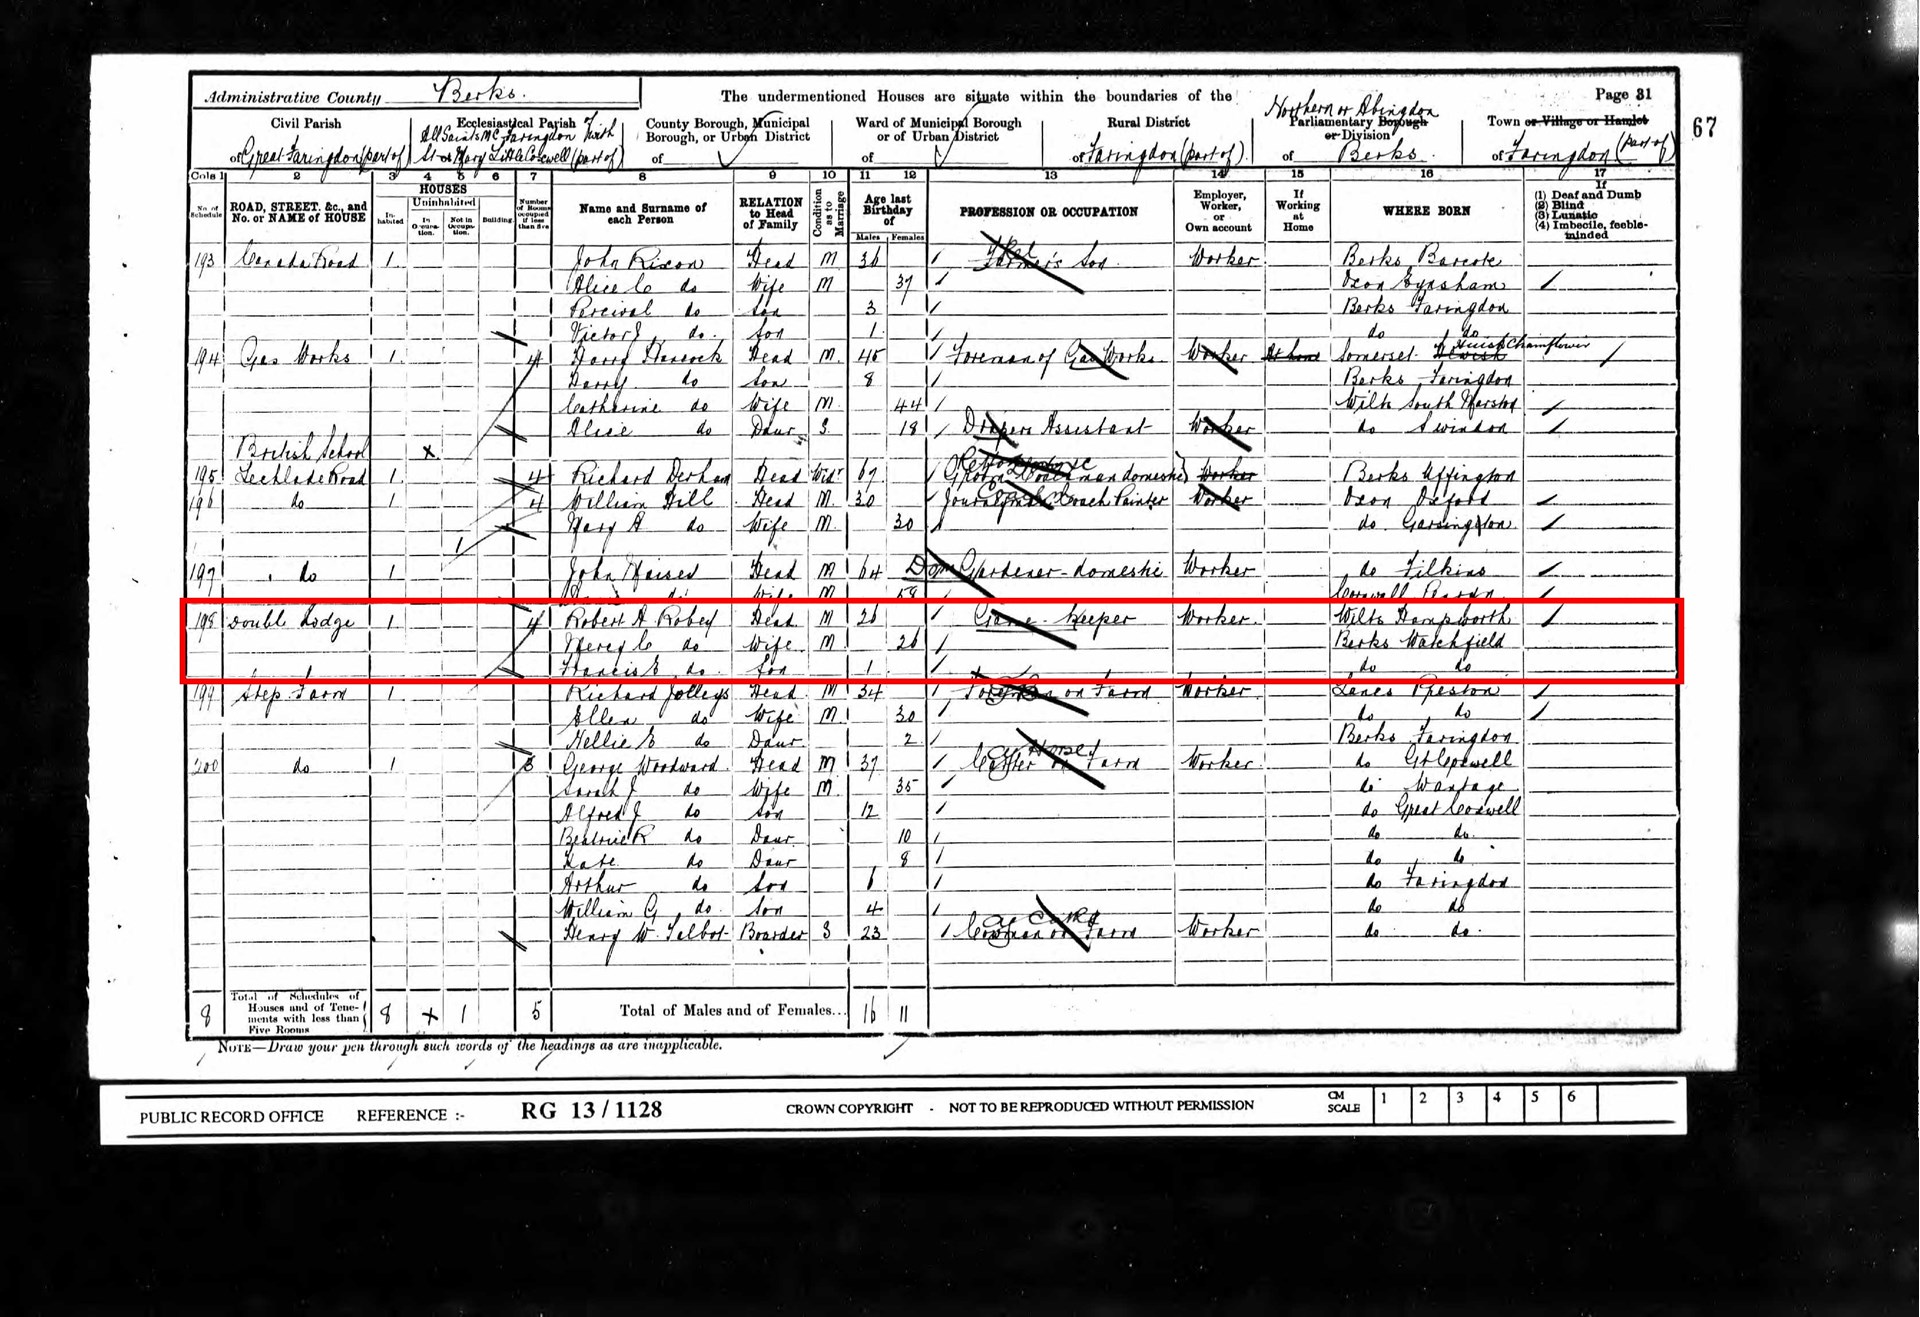 Administrative County Berks.
The undermentioned Houses are situate within the boundaries of the
Page 31
67
Civil Parish
of Great Faringdon (part of)
Ecclesiastical Parish
of
All Saints Faringdon with
St Mary Little Coxwell (part of)
County Borough, Municipal
Borough, or Urban District
of
Ward of Municipal Borough
or of Urban District
of
Rural District
of Faringdon (part of)
Northern or Abingdon
Parliamentary Borough
or Division
of Berks.
Town or Village or Hamlet
of Faringdon (part of)
Cols 1 2 3 4 5 6 7 8 9 10 11 12 13 14 15 16 17
No. of Schedule
ROAD, STREET, &c., and No. or NAME of HOUSE
HOUSES
Inhabited
Uninhabited
In Occupation.
Not in Occupation.
Building.
Number of Rooms occupied if less than five
Name and Surname of each Person
RELATION to Head of Family
Condition as to Marriage
Age last Birthday of
Males Females
PROFESSION OR OCCUPATION
Employer, Worker, or Own account
If Working at Home
WHERE BORN
If
(1) Deaf and Dumb
(2) Blind
(3) Lunatic
(4) Imbecile, feeble-minded
193 Canada Road 1 John Rixon Head M 36 Farmer's Son Worker Berks Barcote
Alice C do Wife M 37 Oxon Eynsham
Percival do Son 3 Berks Faringdon
Victor J do. Son 1 do do
194 Gas Works 1 4 Harry Hancock Head M. 45 Foreman of Gas Works Worker At home Somerset Huish Champflower
Harry do Son 8 Berks Faringdon
Catharine do Wife M. 44 Wilts South Marston
Alice do Daur S. 18 Drapers Assistant Worker do Swindon
British School x
195 Lechlade Road 1. 4 Richard Derham Head Widr 67 Groom Coachman domestic Worker Berks Uffington
196 do 1 4 William Hill Head M. 30 Journeyman Coach Painter Worker Oxon Oxford
Mary A do Wife M. 30 do Garsington
1
197 do 1 John Head M 64 Dom Gardener - domestic Worker do Filkins
Wife 58 Cornwall
198 Double Lodge 1 4 Robert A Robey Head M 26 Game Keeper Worker. Wilts Hampworth
Mercy C do Wife M. 26 Berks Watchfield
Francis E do. Son 1 do do
199 Step Farm 1 Richard Jolleys Head M 34 Foreman on Farm Worker Lancs Preston
Ellen do Wife M. 30 do do
Nellie E do Daur 2 Berks Faringdon
200 do 1 3 George Woodward Head M 37 Carter on Farm Horse Worker. do Gt Coxwell
Sarah J do Wife M. 35 do Wantage
Alfred J do Son 12 do Great Coxwell
Beatrice R do Daur 10 do do.
Kate do Daur 8 do do
Arthur do Son 6 do Faringdon
William G do. Son 4 do do
Henry W. Talbot Boarder S 23 Cowman on Farm Cattle Worker do do.
8 Total of Schedules of Houses and of Tenements with less than Five Rooms 8 x 1 5 Total of Males and of Females... 16 11
NOTE—Draw your pen through such words of the headings as are inapplicable.
PUBLIC RECORD OFFICE REFERENCE :- RG 13/1128 CROWN COPYRIGHT - NOT TO BE REPRODUCED WITHOUT PERMISSION CM SCALE 1 2 3 4 5 6